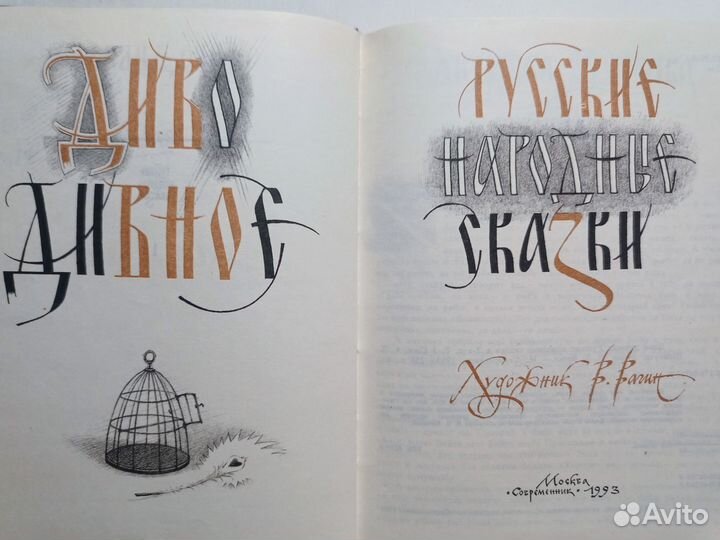 ДИВО
ДИВНОЕ
РУССКИЕ
НАРОДНЫЕ
СКАЗКИ
Художник В. Вагин
Москва
·Современник· 1993
Avito